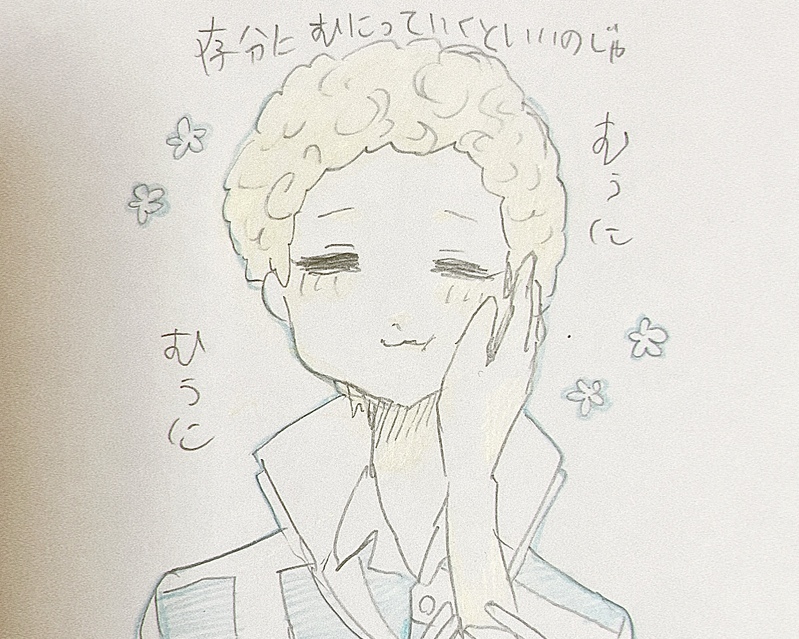 存分にむにっていくといいのじゃ
むぅに
むぅに